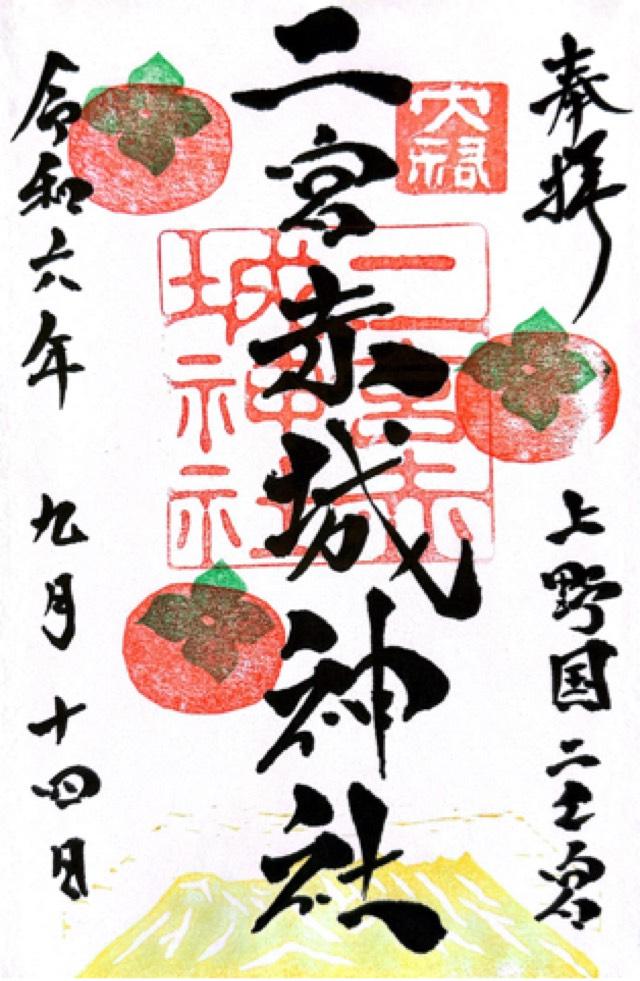 奉拝
上野国二之宮
二宮赤城神社
二宮赤
城神社
令和六年 九月 十四日